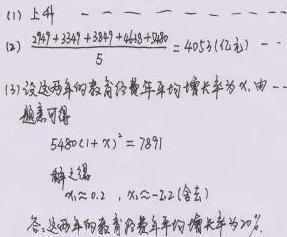 (1) 上升
(2) (2949+3349+3849+4638+5480)/5 = 4053(亿元)
(3) 设这两年的教育经费年平均增长率为x,由
题意可得
5480(1+x)²=7891
解之得
x₁≈0.2,x₂≈-2.2(舍去)
答:这两年的教育经费年平均增长率为20%.